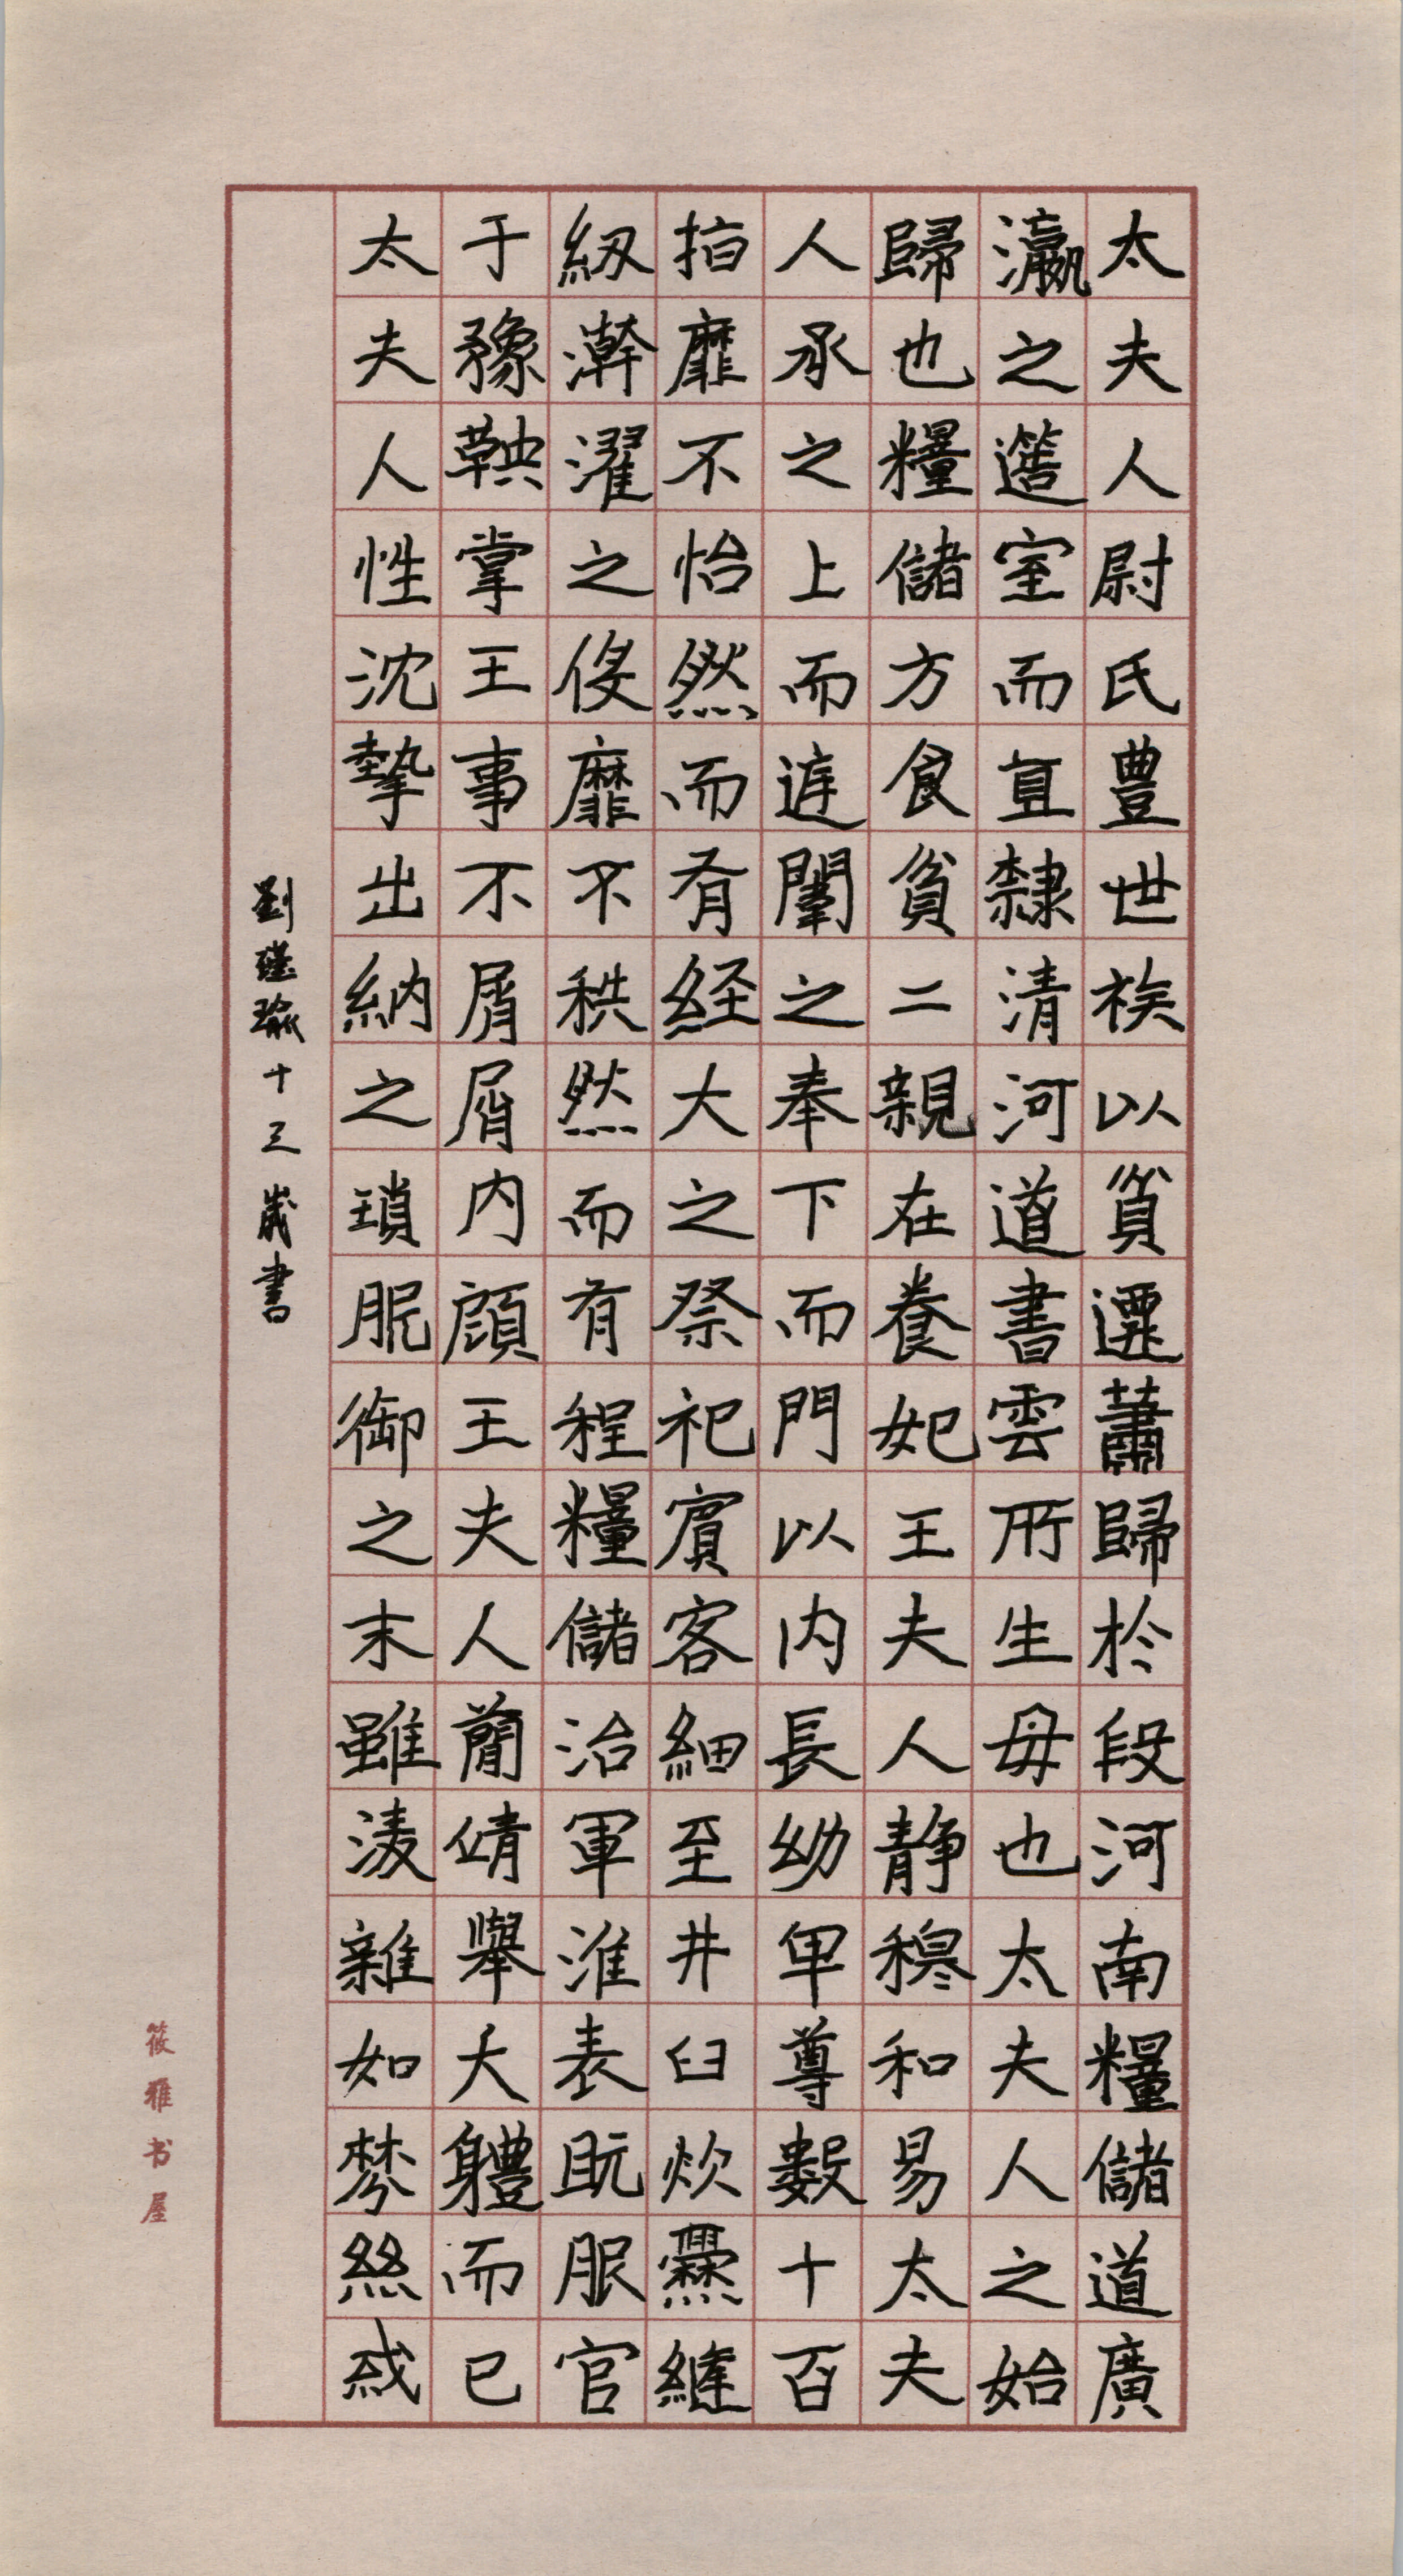 太夫人尉氏豊世族以筫遷蕭歸於段河南糧儲道廣
瀛之簉室而直隸清河道書雲所生母也太夫人之始
歸也糧儲方食貧二親在養妃王夫人靜穆和易太夫
人承之上而遮闈之奉下而門以内長幼卑尊數十百
指靡不怡然而有經大之祭祀賓客細至井臼炊爨縫
紉澣濯之役靡不秩然而有程糧儲治軍淮表既服官
于豫鞅掌王事不屑屑内顧王夫人簡靖舉大體而已
太夫人性沈摯出納之瑣脤御之末雖淩雜如棼絲或
劉瑾瑜十三歲書
筱雅书屋